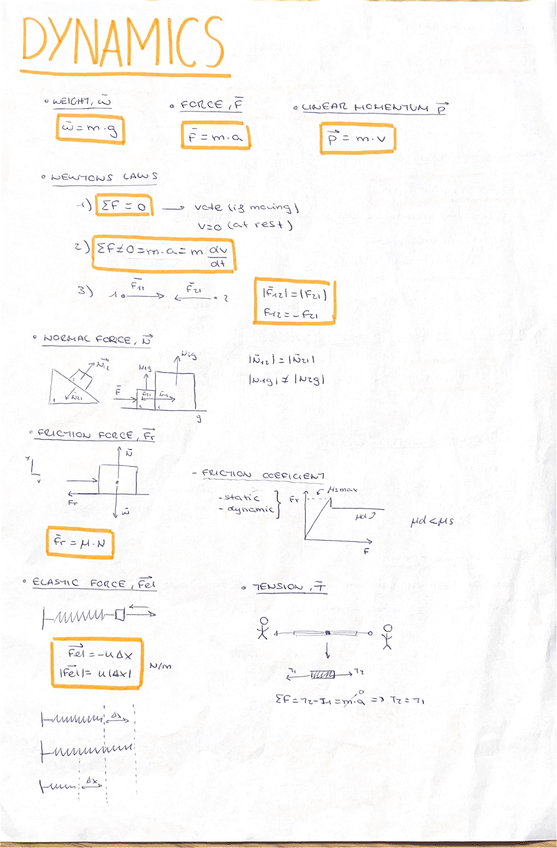 DYNAMICS
• WEIGHT, w⃗
w̄ = m·g
• FORCE, F⃗
F̄ = m·a
• LINEAR MOMENTUM p⃗
p⃗ = m·v
• NEWTONS LAWS
1) ΣF = 0 → v cte (if moving)
v=0 (at rest)
2) ΣF≠0=m·a= m dv/dt
3) 1 F̄12 F̄21 2
|F̄12| = |F21|
F12 = -F21
• NORMAL FORCE, N⃗
|N̄12| = |N̄21|
|N1g| ≠ |N2g|
F̄
g
• FRICTION FORCE, F⃗r
N̄
Fr
w̄
F̄r = μ·N
- FRICTION COEFICIENT
- static
- dynamic
Fr
μs max
μd
F
μd < μs
• ELASTIC FORCE, F⃗el
F⃗el = -k Δx
|F⃗el| = k|Δx|
N/m
Δx
Δx
• TENSION, T̄
T1 T2
ΣF = T2 - T1 = m·a 0 => T2 = T1